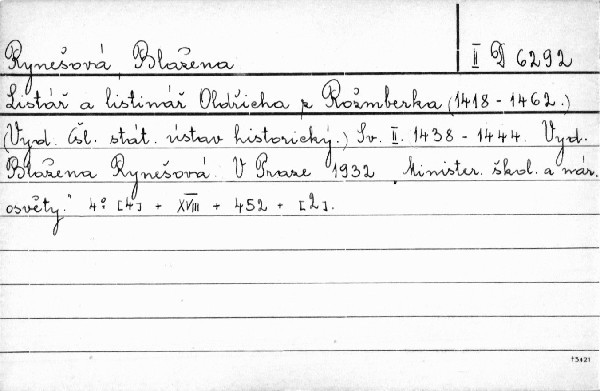 Rynešová Blažena II D 6292
Listář a listinář Oldřicha z Rožmberka (1418 - 1462.)
(Vyd. čsl. stát. ústav historický.) Sv. II. 1438 - 1444. Vyd.
Blažena Rynešová. V Praze 1932 Minister. škol. a nár.
osvěty." 4° [4] + XVIII + 452 + [2].
+3421